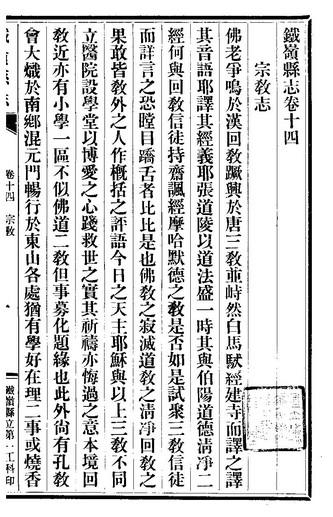 鐵嶺縣志卷十四
宗教志
佛老爭鳴於漢回教蹶興於唐三教並峙然白馬馱經建寺而譯之譯
其音語耶譯其經義耶張道陵以道法盛一時其與伯陽道德清淨二
經何與回教信徒持齋諷經摩哈默德之教是否如是試聚三教信徒
而詳言之恐瞠目蹻舌者比比是也佛教之寂滅道教之清淨回教之
果敢皆教外之人作概括之評語今日之天主耶穌與以上三教不同
立醫院設學堂以博愛之心踐救世之實其祈禱亦悔過之意本境回
教近亦有小學一區不似佛道二教但事募化題緣也此外尚有孔教
會大熾於南鄉混元門暢行於東山各處猶有學好在理二事或燒香
卷十四 宗教
鐵嶺縣立第一工科印